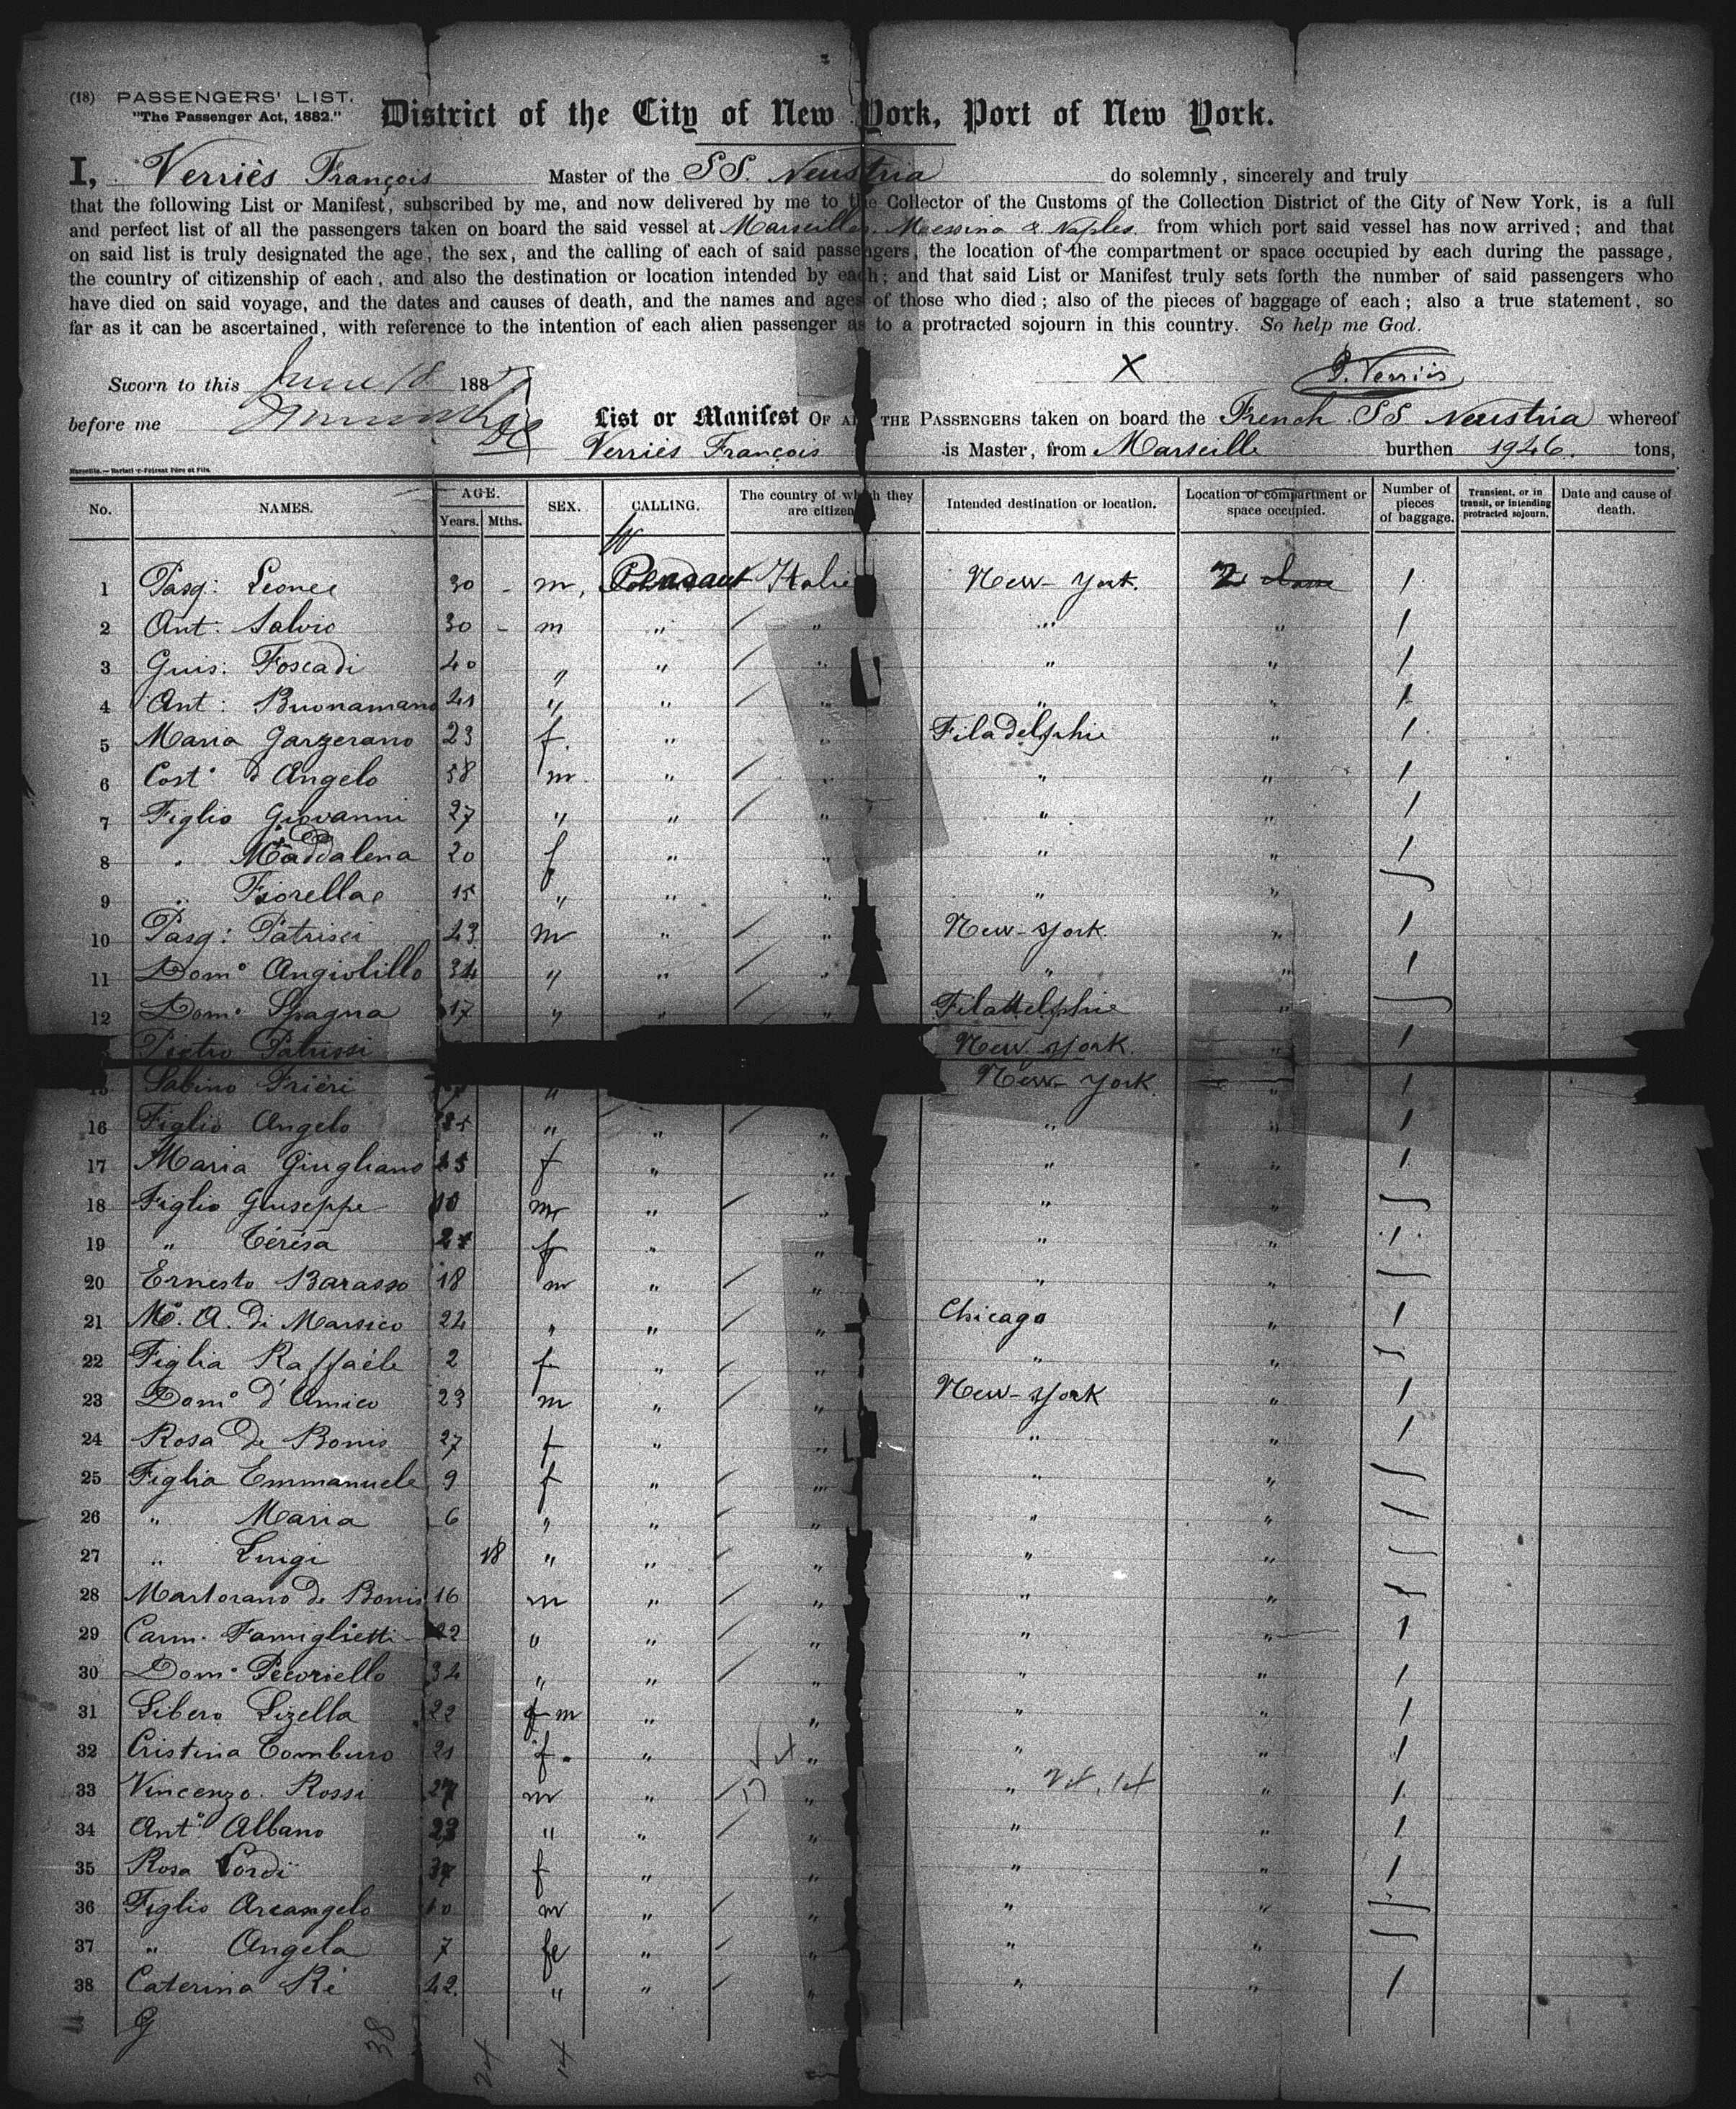 (18) PASSENGERS' LIST.
"The Passenger Act, 1882."
District of the City of New York, Port of New York.
I, Verriès François Master of the SS. Neustria do solemnly, sincerely and truly
that the following List or Manifest, subscribed by me, and now delivered by me to the Collector of the Customs of the Collection District of the City of New York, is a full
and perfect list of all the passengers taken on board the said vessel at Marseilles, Messina & Naples from which port said vessel has now arrived; and that
on said list is truly designated the age, the sex, and the calling of each of said passengers, the location of the compartment or space occupied by each during the passage,
the country of citizenship of each, and also the destination or location intended by each; and that said List or Manifest truly sets forth the number of said passengers who
have died on said voyage, and the dates and causes of death, and the names and ages of those who died; also of the pieces of baggage of each; also a true statement, so
far as it can be ascertained, with reference to the intention of each alien passenger as to a protracted sojourn in this country. So help me God.
Sworn to this June 18 188
X
Verriès
before me
List or Manifest OF ALL THE PASSENGERS taken on board the French SS Neustria whereof
Verriès François is Master, from Marseille burthen 1946. tons,
No. NAMES. AGE. Years. Mths. SEX. CALLING. The country of which they are citizen Intended destination or location. Location of compartment or space occupied. Number of pieces of baggage. Transient, or in transit, or intending protracted sojourn. Date and cause of death.
1 Pasq: Leonee 30 - m, Italie New-York. 2 1
2 Ant: Salvio 30 - m " " " " 1
3 Guis: Foscadi 40 " " " " " 1
4 Ant: Buonamano 21 " " " " " 1
5 Maria Garzerano 23 f. " " Filadelphie " 1
6 Cost° d'Angelo 58 m. " " " " 1
7 Figlio Giovanni 27 " " " " " 1
8 " Maddalena 20 f " " " " 1
9 " Fiorellae 15 " " " " "
10 Pasq: Patrisci 43 m " " New-York. " 1
11 Dom° Angiolillo 34 " " " " " 1
12 Dom° Spagna 17 " " " Filadelphie "
Pietro Patrissi New York. " 1
15 Sabino Frieri " New-York. " 1
16 Figlio Angelo " " " " " 1
17 Maria Giugliano f " " " " 1
18 Figlio Giuseppe 10 m " " " "
19 " Térésa f " " " " 1
20 Ernesto Barasso 18 m " " " "
21 M°. A. di Marsico 22 " " " Chicago " 1
22 Figlia Raffaéle 2 f " " " "
23 Dom° d'Amico 23 m " " New-York " 1
24 Rosa de Bonis 27 f " " " " 1
25 Figlia Emmanuele 9 f " " " "
26 " Maria 6 " " " " "
27 " Luigi 18 " " " " "
28 Martorano de Bonis 16 m " " " "
29 Carm. Famiglietti 22 " " " " " 1
30 Dom° Pecoriello 34 " " " " " 1
31 Libero Lizella 22 f m " " " " 1
32 Cristina Comburo 21 f. " " " " 1
33 Vincenzo Rossi 27 m " " " 24.14 " 1
34 Ant° Albano 23 " " " " " 1
35 Rosa Lordi f " " " " 1
36 Figlio Arcangelo 10 m " " " "
37 " Angela 7 fe " " " "
38 Caterina Ré 42. " " " " " 1
G
38 24 14